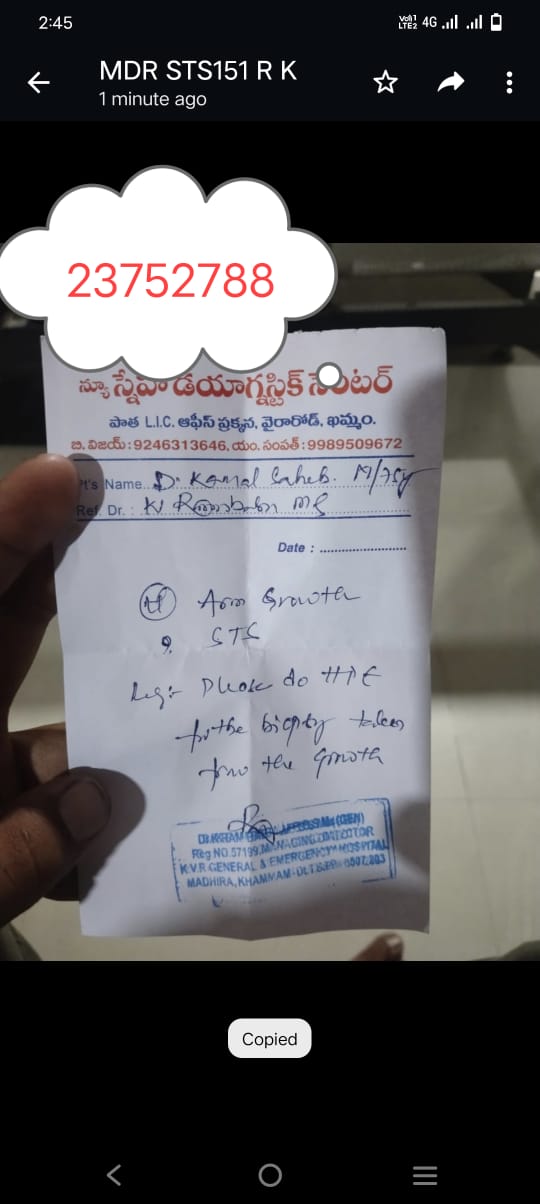 2:45
VoI1 LTE2 4G
MDR STS151 R K
1 minute ago
23752788
న్యూ స్నేహ డయాగ్నస్టిక్ సెంటర్
పాత L.I.C. ఆఫీస్ ప్రక్కన, వైరారోడ్, ఖమ్మం.
బి. విజయ్ : 9246313646, యం. సంపత్ : 9989509672
Pt's Name D. Kamal Saheb. M/75y
Ref. Dr. : K Rambabu MS
Date :
Arm Growth
? STS
Please do HPE
for the biopsy taken
from the growth
Reg NO.57199.MANAGING DIRECTOR
K.V.R GENERAL & EMERGENCY HOSPITAL
MADHIRA, KHAMMAM-DLT
Copied